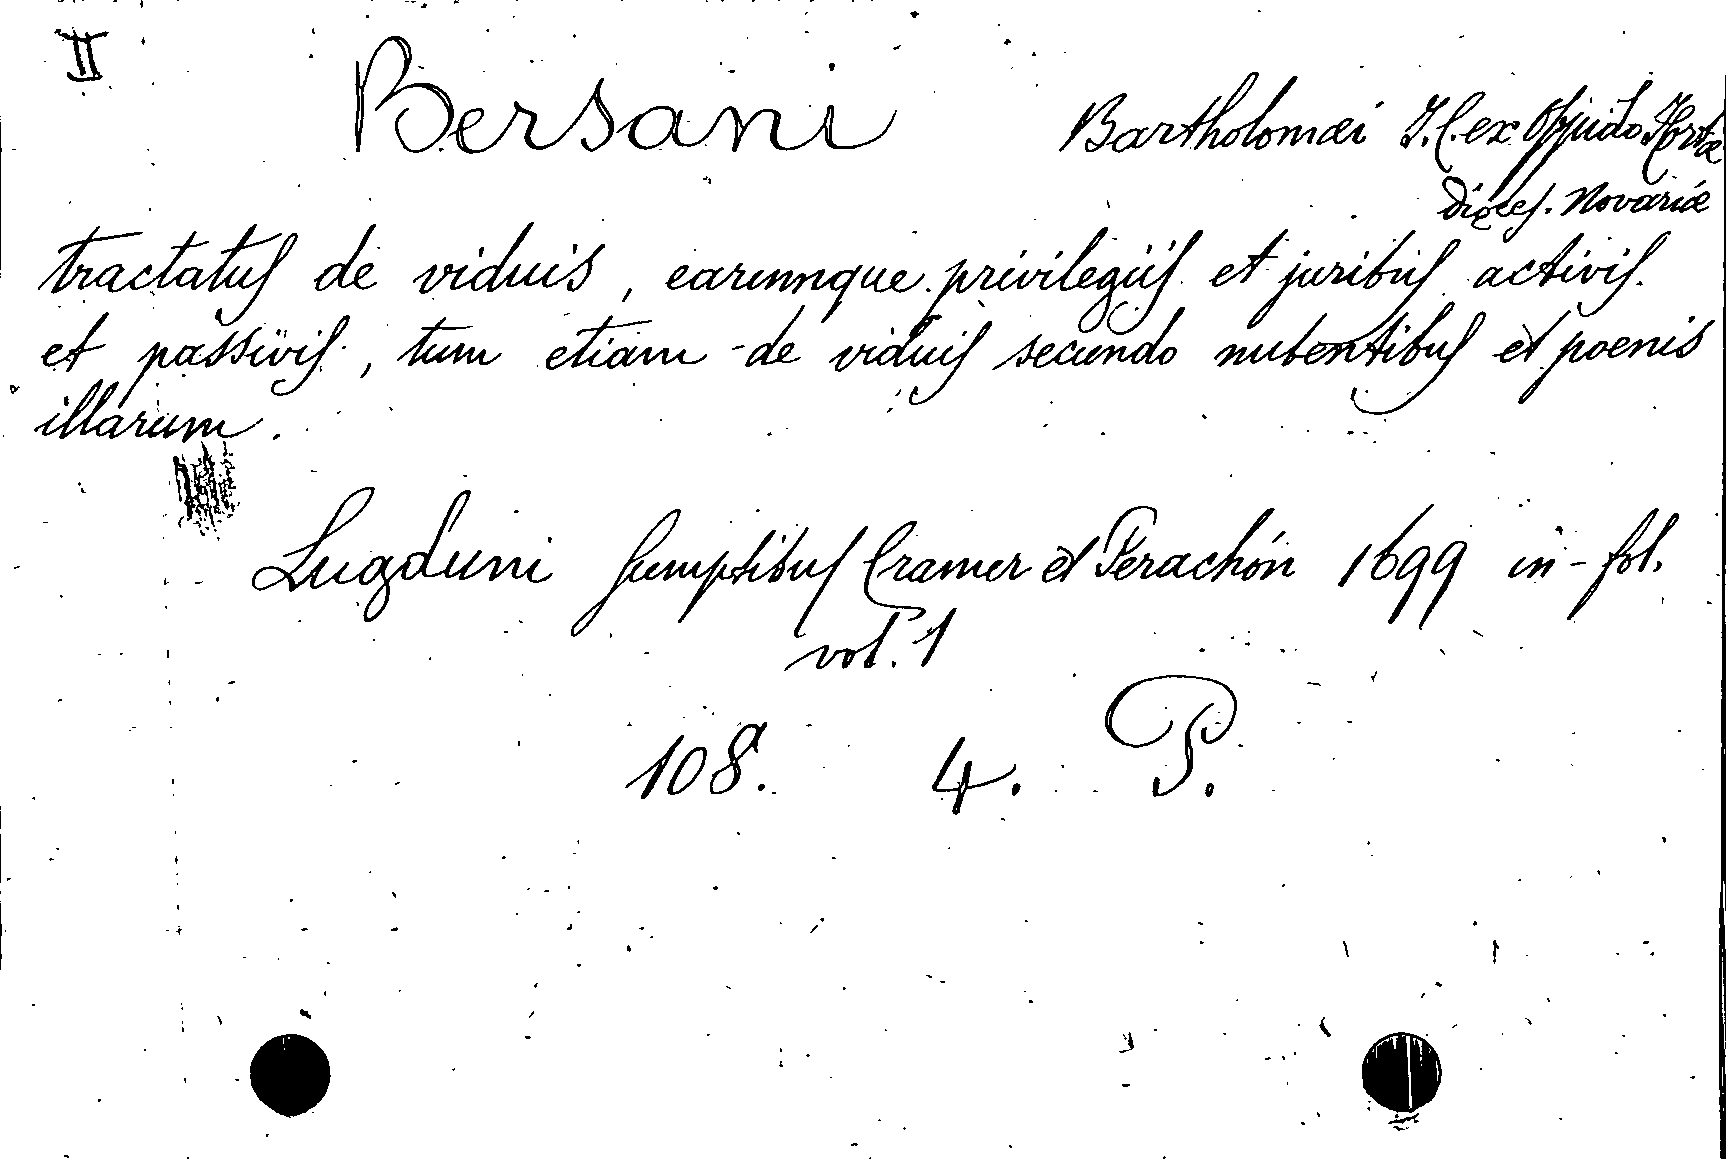 II
Bersani Bartholomæi J.C. ex Oppido Hortæ
Diœces. Novariæ
tractatus de viduis, earumque privilegiis et juribus activis
et passivis, tum etiam de viduis secundo nubentibus et poenis
illarum.
Lugduni sumptibus Cramer et Perachon 1699 in-fol.
vol. 1
108. 4. P.